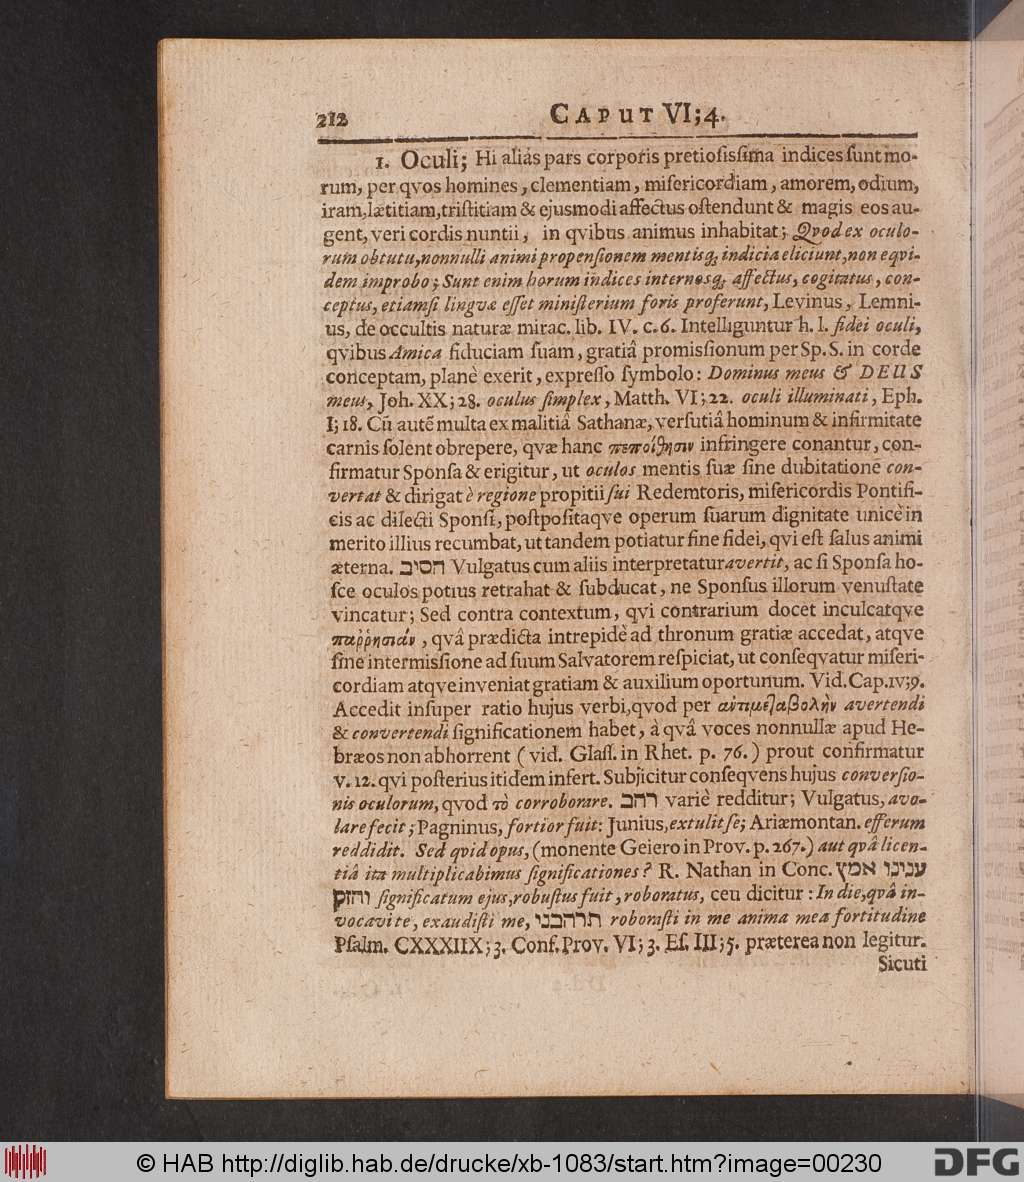 212
CAPUT VI; 4.
1. Oculi; Hi aliás pars corporis pretiosissima indices sunt mo-
rum, per qvos homines, clementiam, misericordiam, amorem, odium,
iram, lætitiam, tristitiam & ejusmodi affectus ostendunt & magis eos au-
gent, veri cordis nuntii, in qvibus animus inhabitat; Qvod ex oculo-
rum obtutu, nonnulli animi propensionem mentisq; indicia eliciunt, non eqvi-
dem improbo; Sunt enim horum indices internosq; affectus, cogitatus, con-
ceptus, etiamsi lingvæ esset ministerium foris proferunt, Levinus, Lemni-
us, de occultis naturæ mirac. lib. IV. c. 6. Intelliguntur h. l. fidei oculi,
qvibus Amica fiduciam suam, gratiâ promissionum per Sp. S. in corde
conceptam, planè exerit, expresso symbolo: Dominus meus & DEUS
meus, Joh. XX; 28. oculus simplex, Matth. VI; 22. oculi illuminati, Eph.
I; 18. Cũ autẽ multa ex malitiâ Sathanæ, versutiâ hominum & infirmitate
carnis solent obrepere, qvæ hanc πεποίθησιν infringere conantur, con-
firmatur Sponsa & erigitur, ut oculos mentis suæ sine dubitatione con-
vertat & dirigat è regione propitii sui Redemtoris, misericordis Pontifi-
cis ac dilecti Sponsi, postpositaqve operum suarum dignitate unicè in
merito illius recumbat, ut tandem potiatur fine fidei, qvi est salus animi
æterna. הסיב Vulgatus cum aliis interpretatur avertit, ac si Sponsa ho-
sce oculos potius retrahat & subducat, ne Sponsus illorum venustate
vincatur; Sed contra contextum, qvi contrarium docet inculcatqve
παῤῥησιάν, qvâ prædicta intrepidè ad thronum gratiæ accedat, atqve
sine intermissione ad suum Salvatorem respiciat, ut conseqvatur miseri-
cordiam atqve inveniat gratiam & auxilium oportunum. Vid. Cap. IV; 9.
Accedit insuper ratio hujus verbi, qvod per αὐτιμεταβολὴν avertendi
& convertendi significationem habet, à qvâ voces nonnullæ apud He-
bræos non abhorrent (vid. Glass. in Rhet. p. 76.) prout confirmatur
v. 12. qvi posterius itidem infert. Subjicitur conseqvens hujus conversio-
nis oculorum, qvod τὸ corroborare. רהב variè redditur; Vulgatus, avo-
lare fecit; Pagninus, fortior fuit: Junius, extulit se; Ariæmontan. efferum
reddidit. Sed qvid opus, (monente Geiero in Prov. p. 267.) aut qvâ licen-
tiâ ita multiplicabimus significationes? R. Nathan in Conc. ענינו אמץ
וחזק significatum ejus, robustus fuit, roboratus, ceu dicitur: In die, qvâ in-
vocavi te, exaudisti me, תרהבני roborasti in me anima mea fortitudine
Psalm. CXXXIIX; 3. Conf. Prov. VI; 3. Es. III; 5. præterea non legitur.
Sicuti
© HAB http://diglib.hab.de/drucke/xb-1083/start.htm?image=00230
DFG